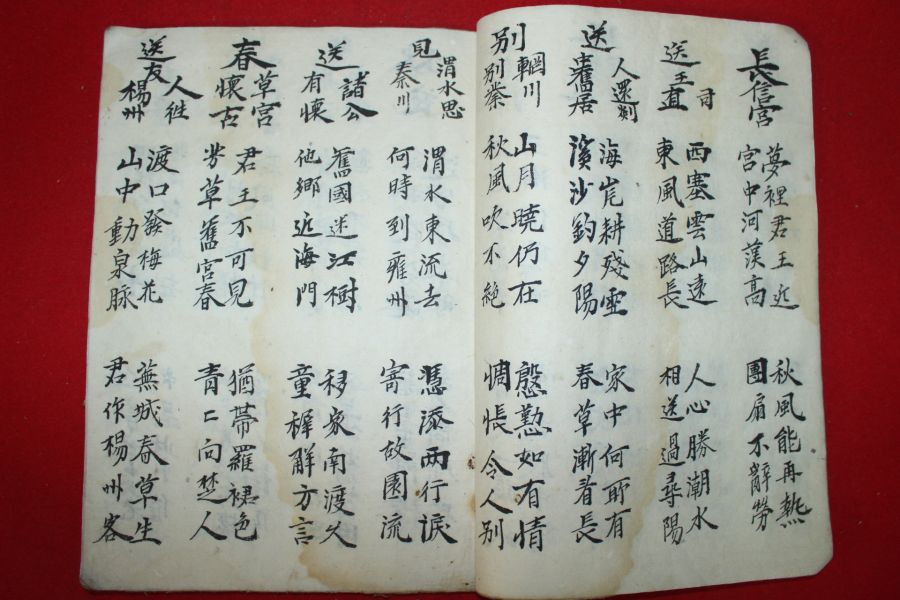 長信宮
夢裡君王近
宮中河漢高
秋風能再熱
團扇不辭勞
送王司直
西塞雲山遠
東風道路長
人心勝潮水
相送過尋陽
送人還剡中舊居
海岸耕殘雪
溪沙釣夕陽
家中何所有
春草漸看長
別輞川別業
山月曉仍在
秋風吹不絕
慇懃如有情
惆悵令人別
見渭水思秦川
渭水東流去
何時到雍州
憑添兩行淚
寄行故園流
送諸公有懷
舊國迷江樹
他鄉近海門
移家南渡久
童穉解方言
春草宮懷古
君王不可見
芳草舊宮春
猶帶羅裙色
青〻向楚人
送友人往楊州
渡口發梅花
山中動泉脉
蕪城春草生
君作楊州客